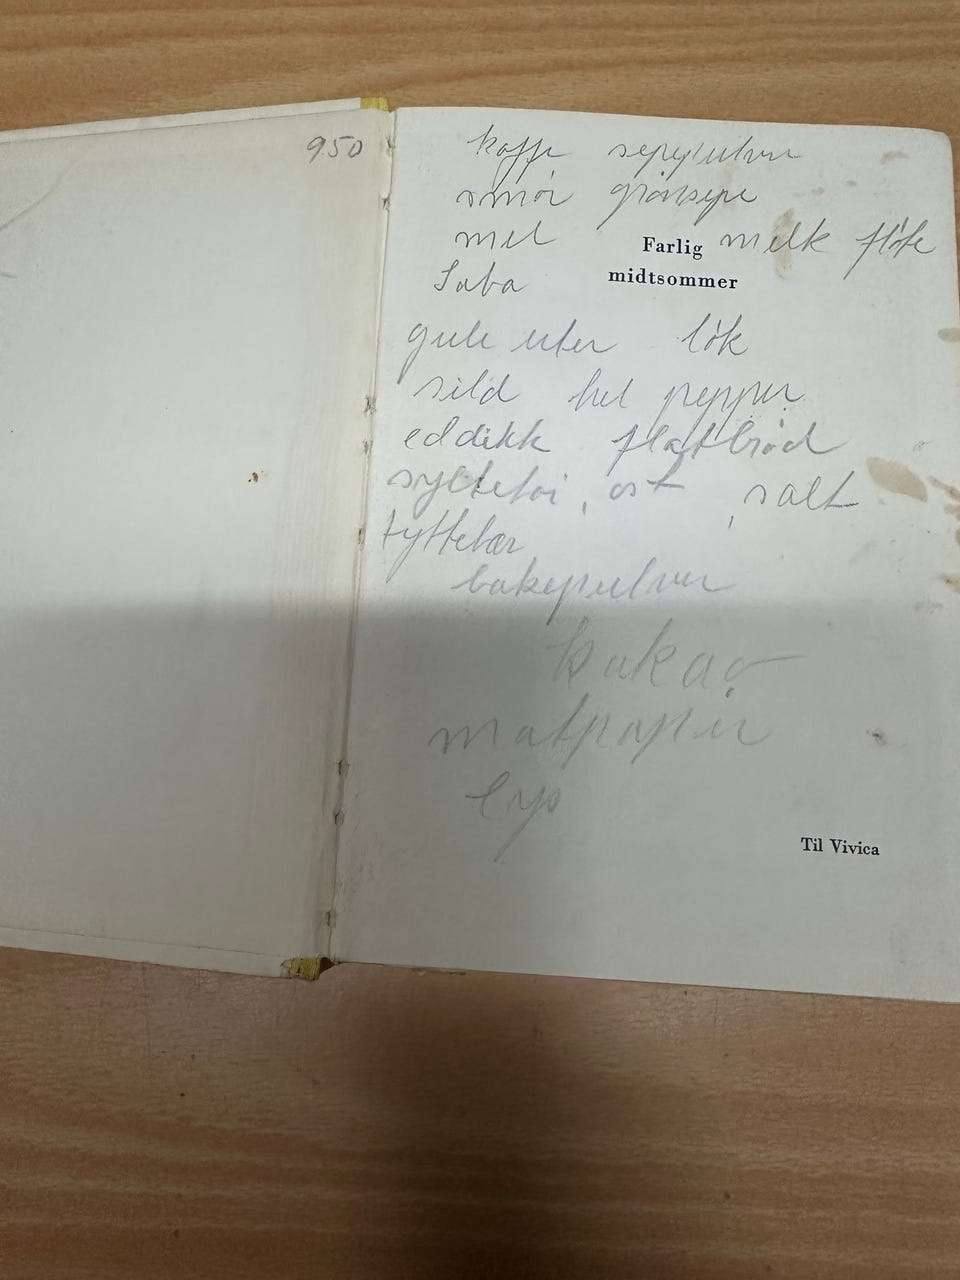 950
kaffe sepepulver
smör grönsepe
mel melk flöte
Farlig
midtsommer
Saba
gule erter lök
sild hel pepper
eddikk flatbröd
syltetöi, ost, salt
tyttebær
bakepulver
kakao
matpapir
lys
Til Vivica